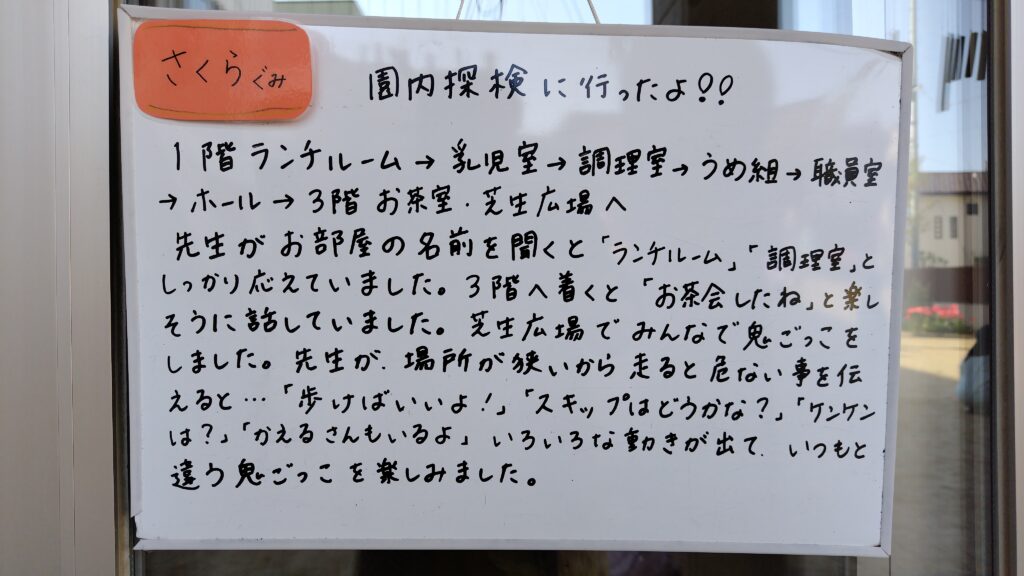 さくらぐみ
園内探検に行ったよ!!
1階ランチルーム→乳児室→調理室→うめ組→職員室
→ホール→3階お茶室・芝生広場へ
先生がお部屋の名前を聞くと「ランチルーム」「調理室」と
しっかり応えていました。3階へ着くと「お茶会したね」と楽し
そうに話していました。芝生広場でみんなで鬼ごっこを
しました。先生が、場所が狭いから走ると危ない事を伝
えると…「歩けばいいよ!」「スキップはどうかな?」「ケンケン
は?」「かえるさんもいるよ」いろいろな動きが出て、いつもと
違う鬼ごっこを楽しみました。